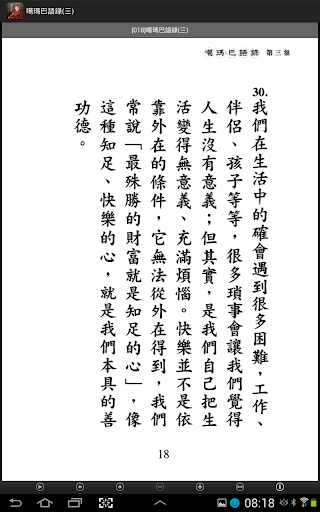 噶瑪巴語錄(三)
[018]噶瑪巴語錄(三)
噶瑪巴語錄 第三集
30.我們在生活中的確會遇到很多困難，工作、
伴侶、孩子等等，很多瑣事會讓我們覺得
人生沒有意義；但其實，是我們自己把生
活變得無意義、充滿煩惱。快樂並不是依
靠外在的條件，它無法從外在得到，我們
常說「最殊勝的財富就是知足的心」，像
這種知足、快樂的心，就是我們本具的善
功德。
18
08:18